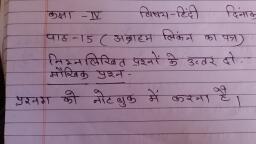 कक्षा - IV विषय - हिंदी दिनांक
पाठ - 15 ( अब्राहम लिंकन का पत्र )
निम्नलिखित प्रश्नों के उत्तर दो -
मौखिक प्रश्न -
को नोटबुक में करना है।